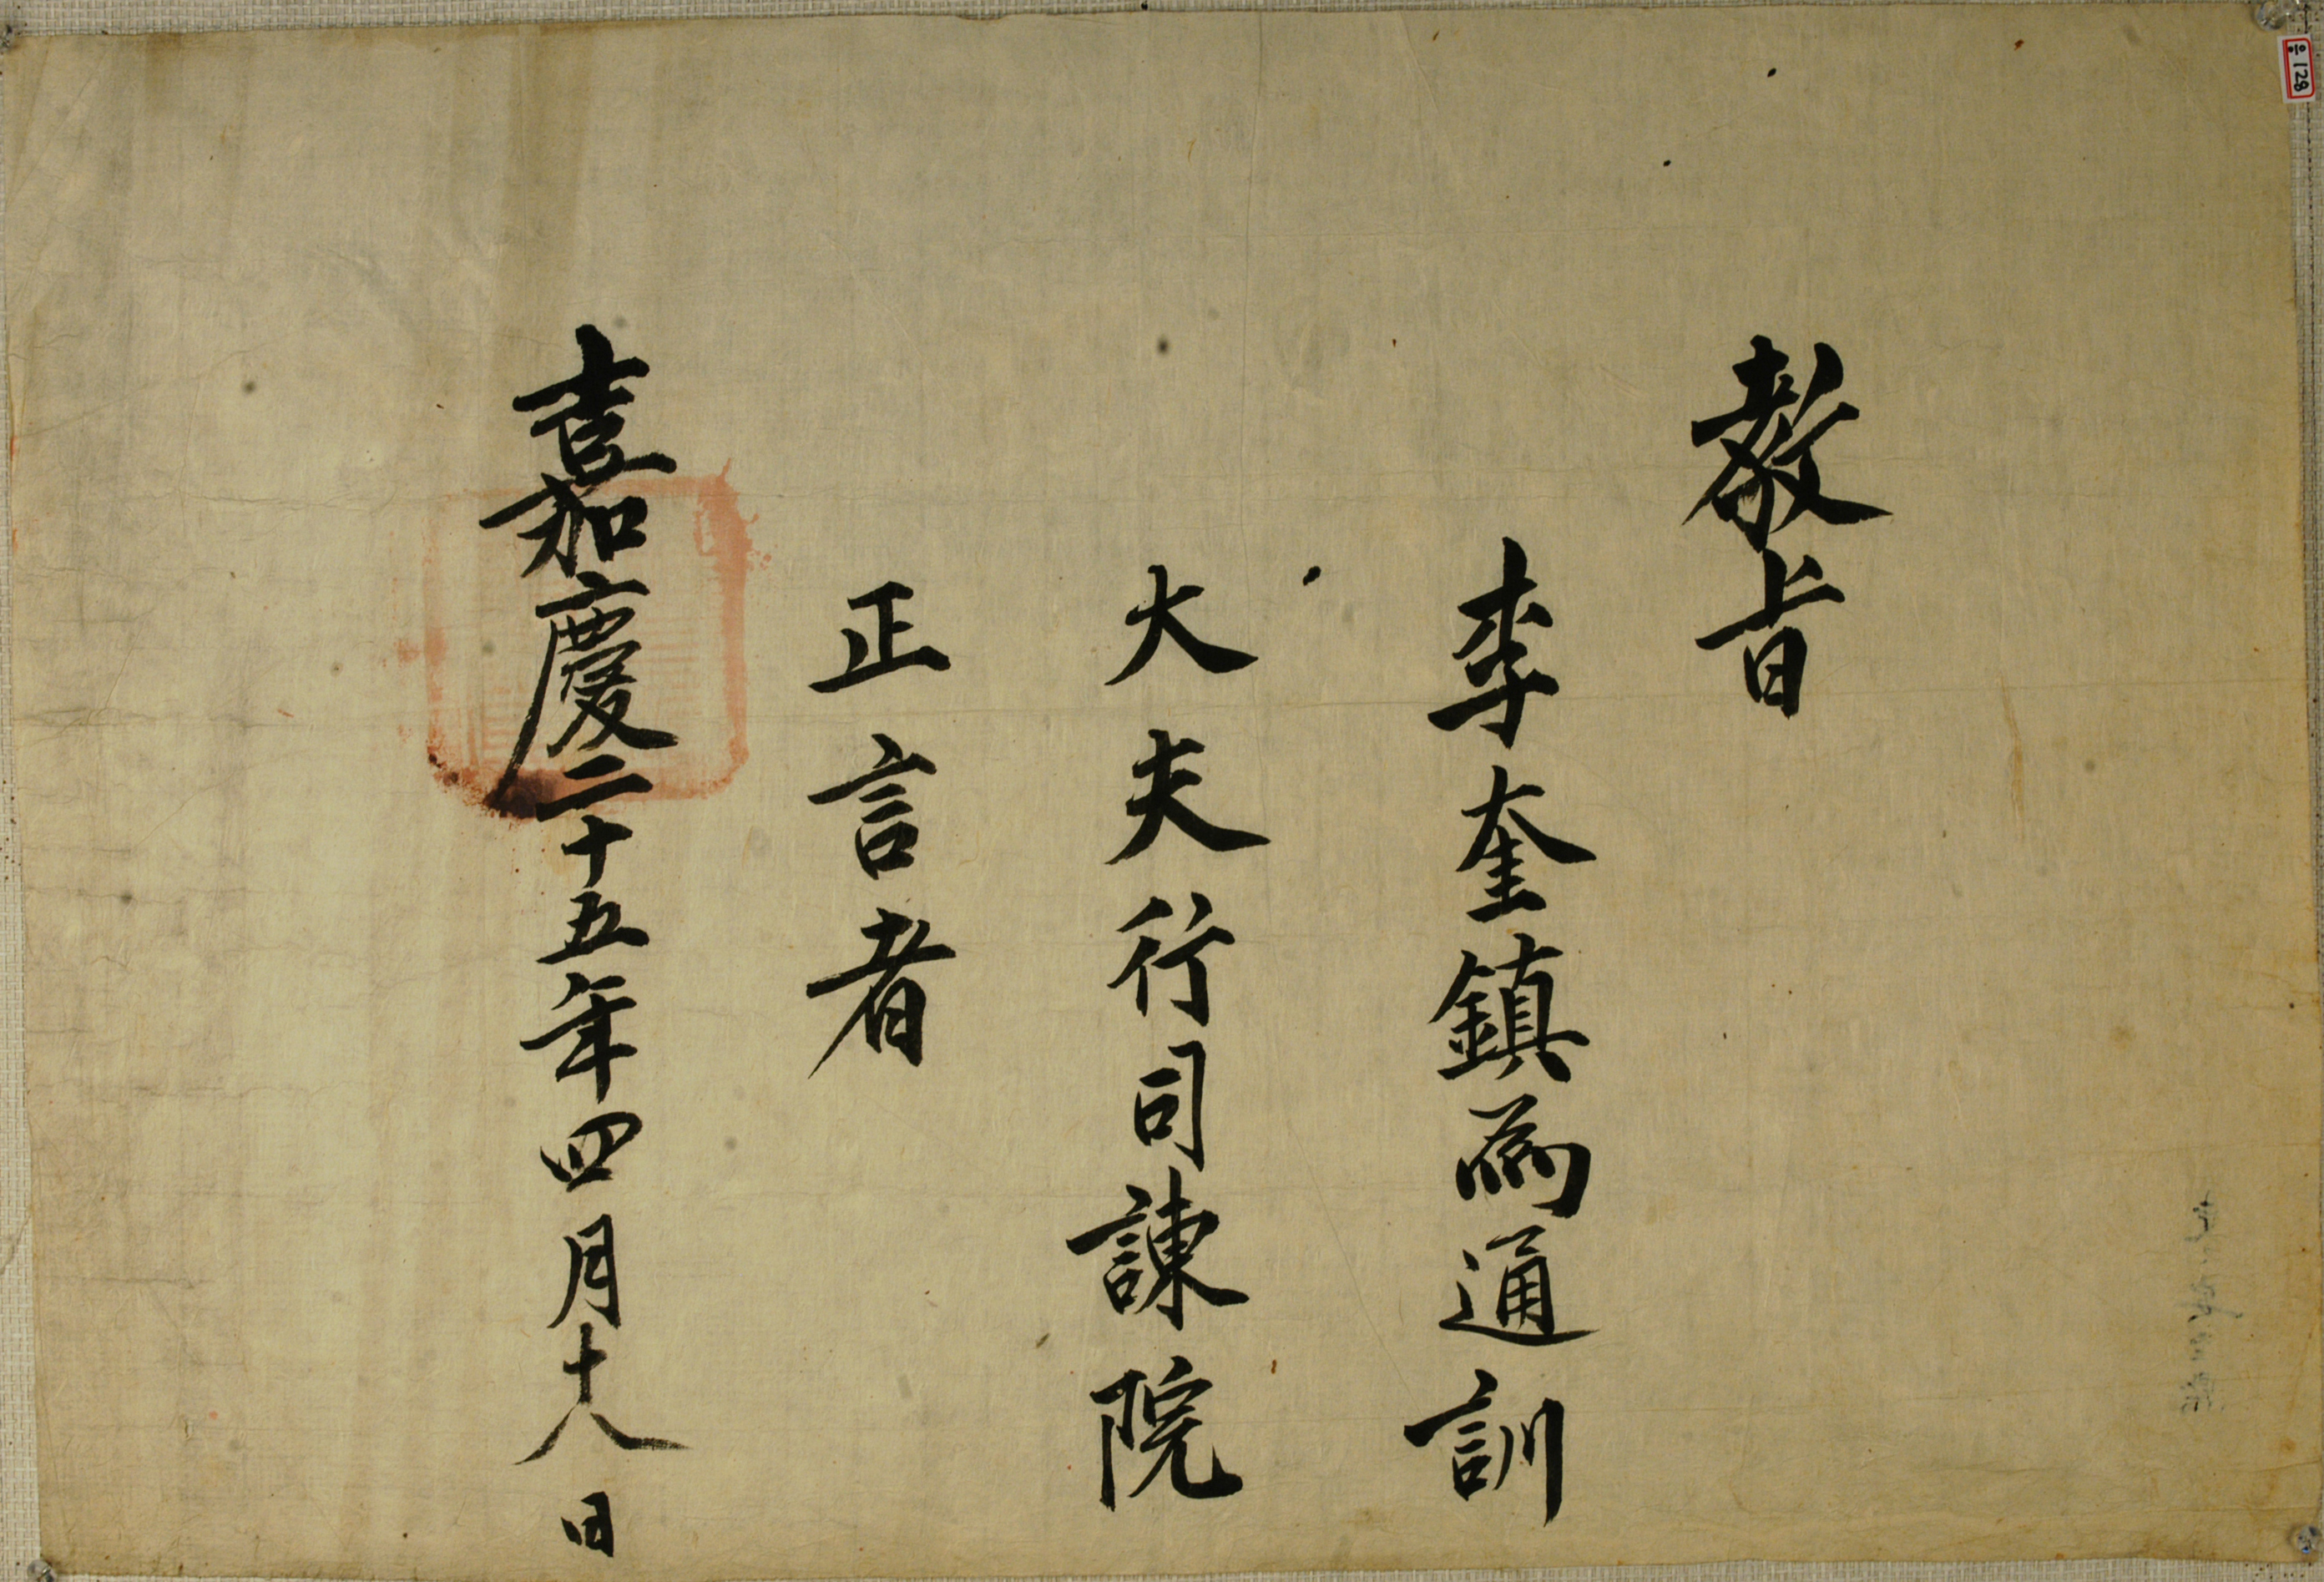 敎旨
李奎鎭爲通訓
大夫行司諫院
正言者
嘉慶二十五年四月十八日
128